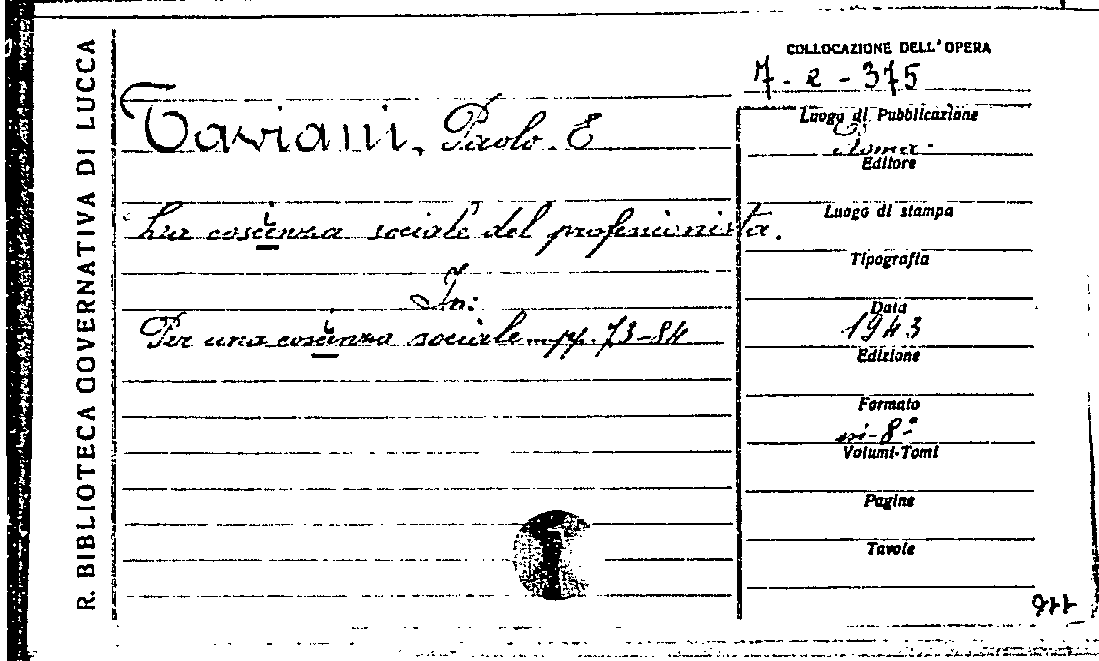 R. BIBLIOTECA GOVERNATIVA DI LUCCA
Taviani, Paolo. E
La coscienza sociale del professionista.
In:
Per una coscienza sociale... pp. 73-84
COLLOCAZIONE DELL'OPERA
7-2-375
Luogo di Pubblicazione
Roma.
Editore
Luogo di stampa
Tipografia
Data
1943
Edizione
Formato
in-8°
Volumi-Tomi
Pagine
Tavole